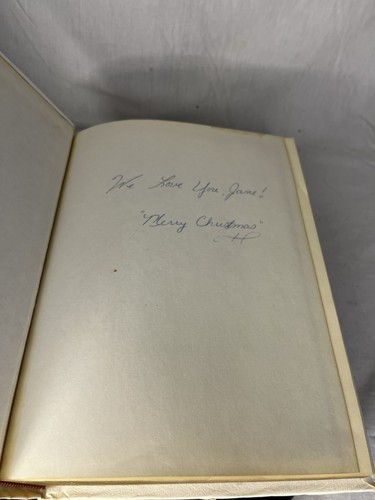 We Love You, Jane!
"Merry Christmas"